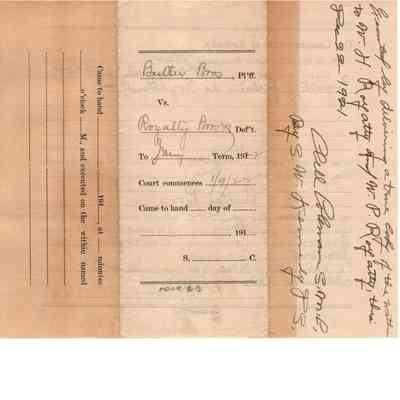 Came to hand 191 , at minutes
o'clock M., and executed on the within named
Butler Bros , Pl'ff.
Vs.
Royalty Bros Def't.
To Term, 191
Court commences 1/9/22
Came to hand day of
, 191
S. C.
Executed by delivering a true copy of the within
to W. H. Royalty & W. P. Royalty, this
22 1921.
Coleman
By S. W. Kennedy